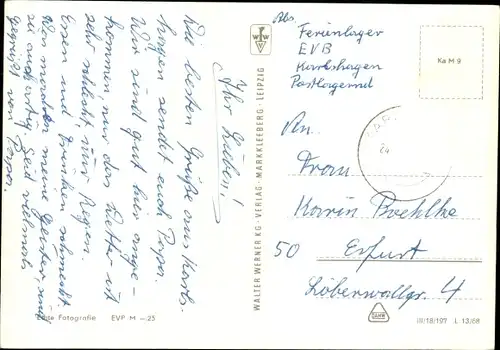 Ihr Lieben!
Die besten Grüße aus Karls-
hagen sendet euch Papa.
Wir sind gut hier ange-
kommen, nur das Wetter ist
sehr schlecht, nur Regen.
Essen und Trinken schmeckt
meine Geister, sind
Seid vielmals
gegrüßt von Papa.
Echte Fotografie EVP M –25
WALTER WERNER KG · VERLAG · MARKKLEEBERG · LEIPZIG
Abs.
Ferienlager
EVB
Karlshagen
Postlagernd
Ka M 9
24
An.
Frau
Karin Boehlke
50 Erfurt
Löberwallgr. 4
III/18/197 L 13/68